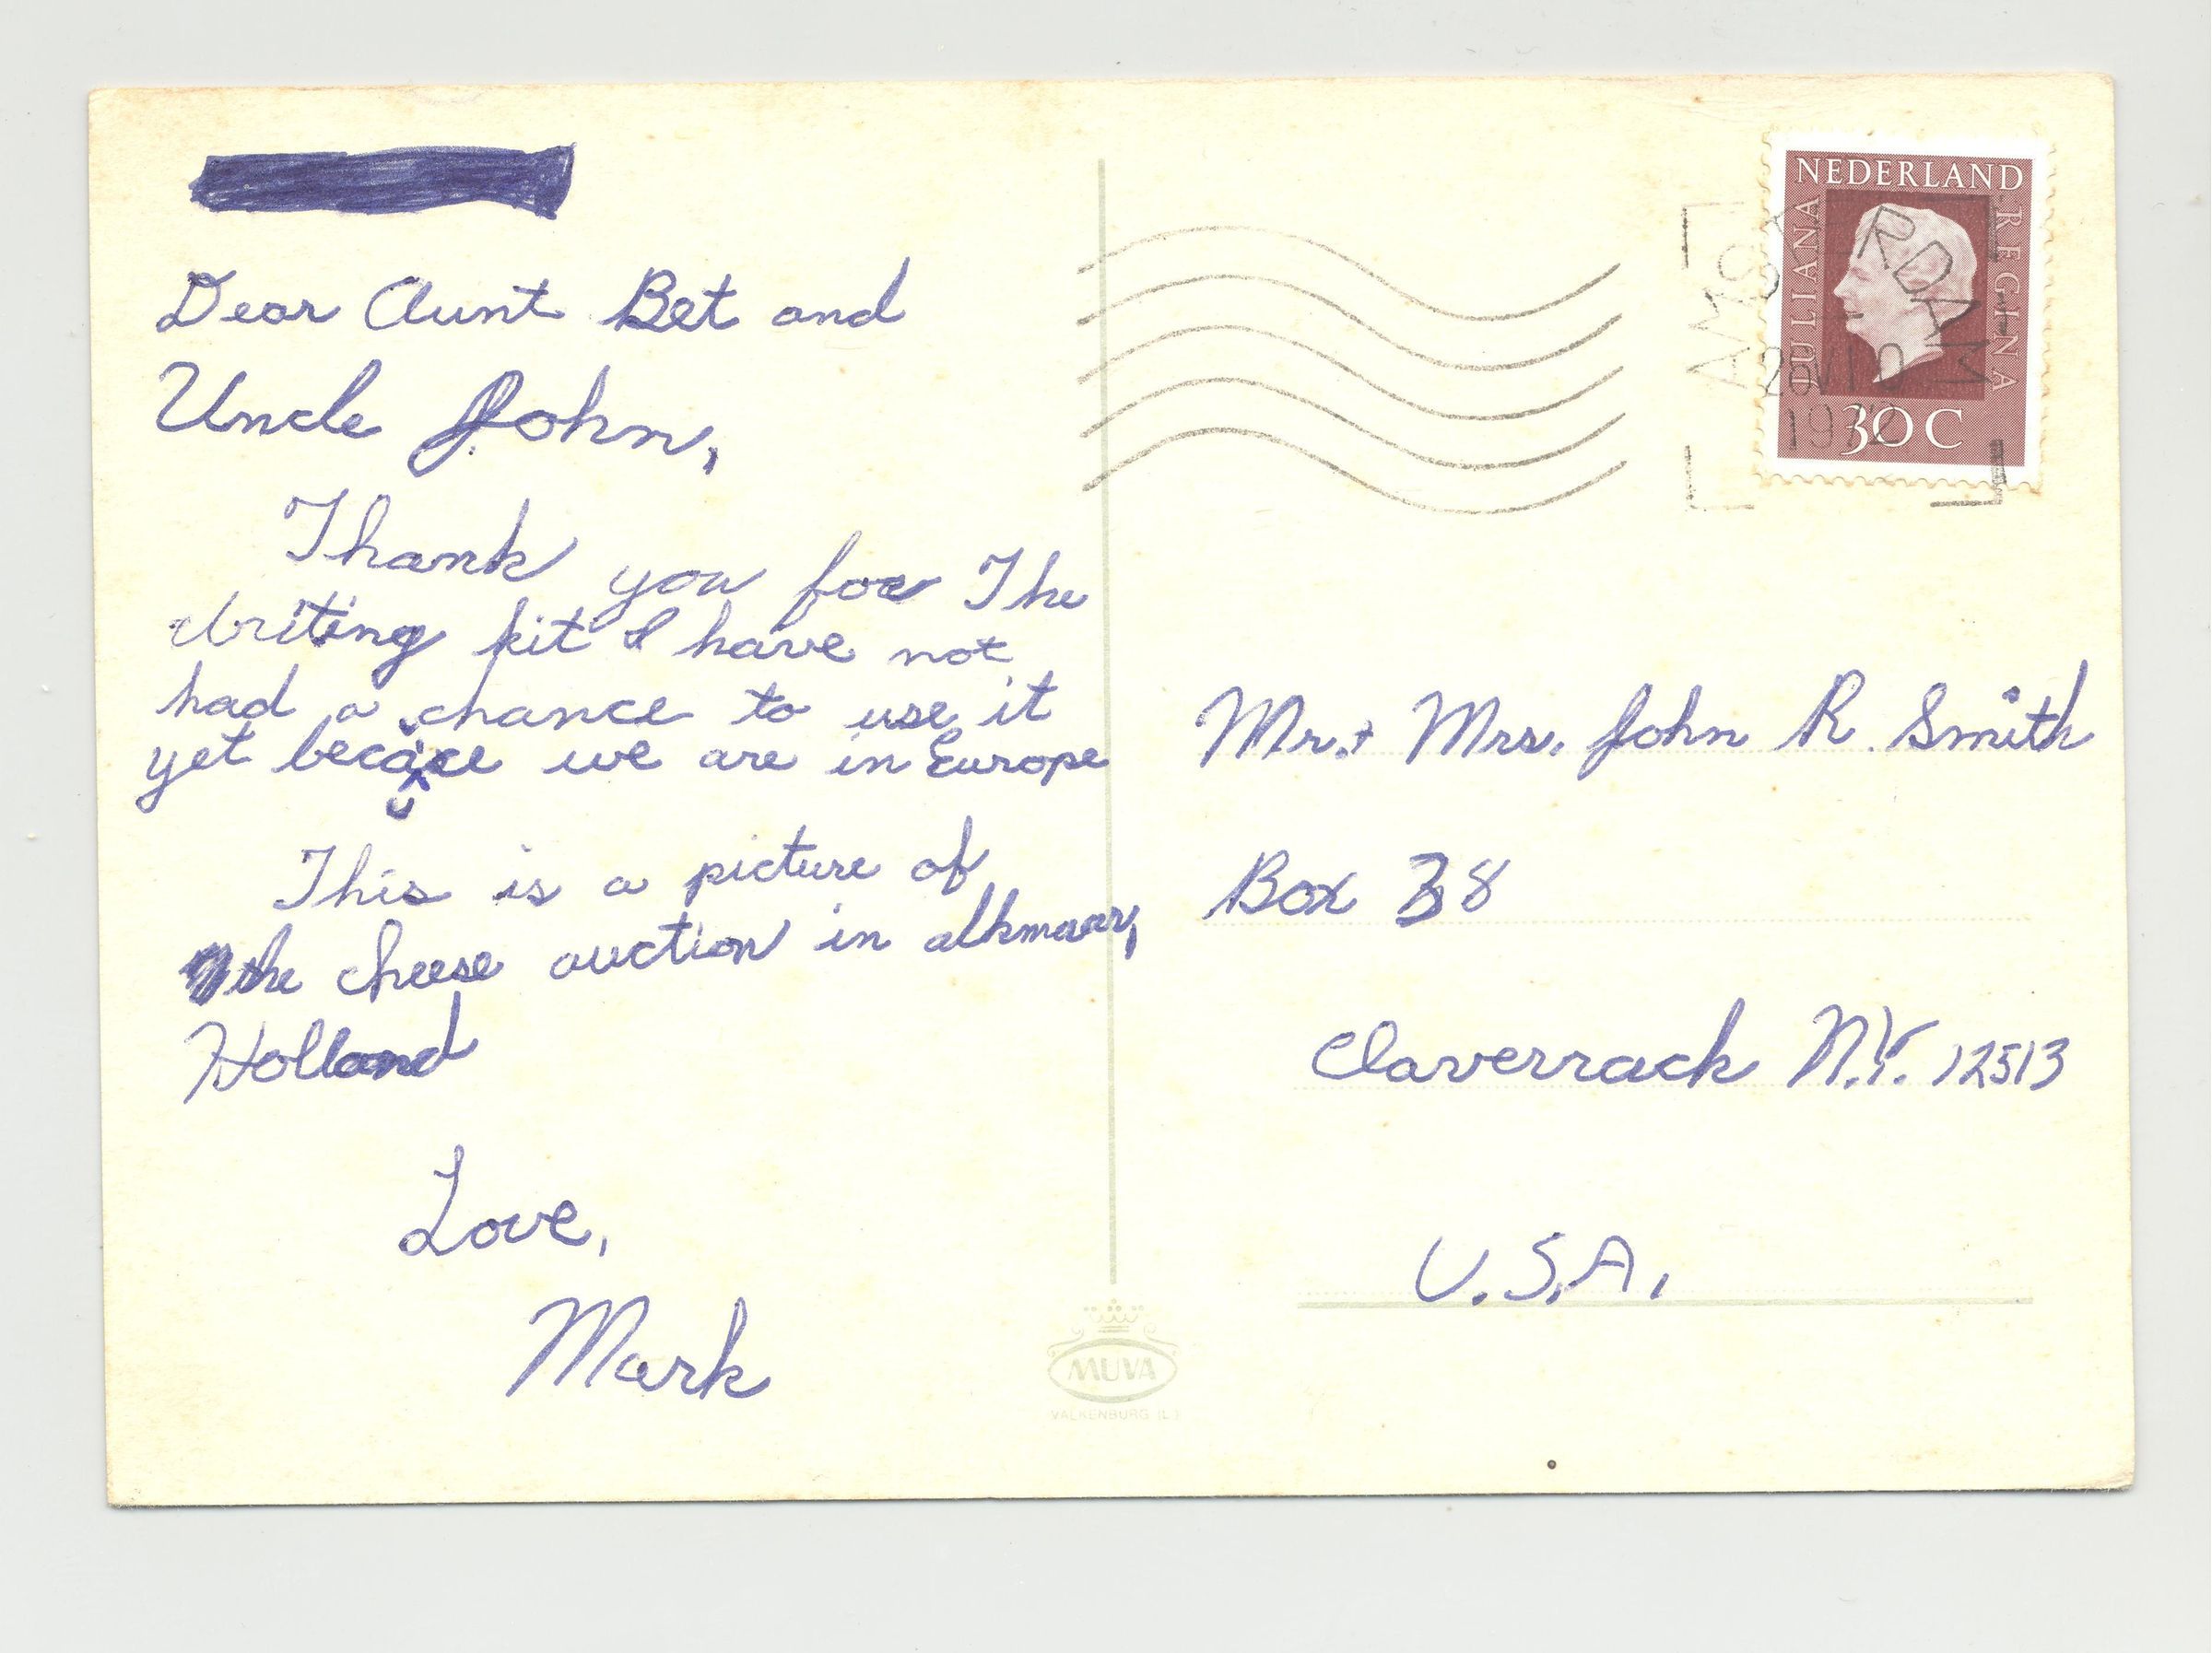 Dear Aunt Bet and
Uncle John,
Thank you for The
writing kit I have not
had a chance to use it
yet becauce we are in Europe
This is a picture of
the cheese auction in alkmaar,
Holland
Love,
Mark
NEDERLAND
JULIANA REGINA
30 C
AMSTERDAM
1972
Mr. + Mrs. John R. Smith
Box 38
Claverrack N.Y. 12513
U.S.A.
MUVA
VALKENBURG (L.)